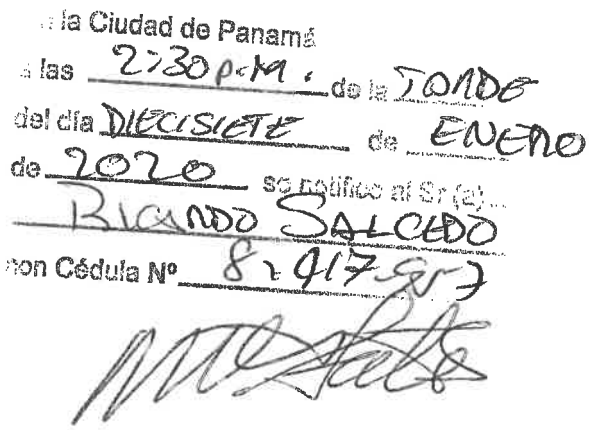 la Ciudad de Panamá
las 2:30 p.M. de la TARDE
del día DIECISIETE de ENERO
de 2020 se notifico al Sr (a)
RICARDO SALCEDO
con Cédula Nº